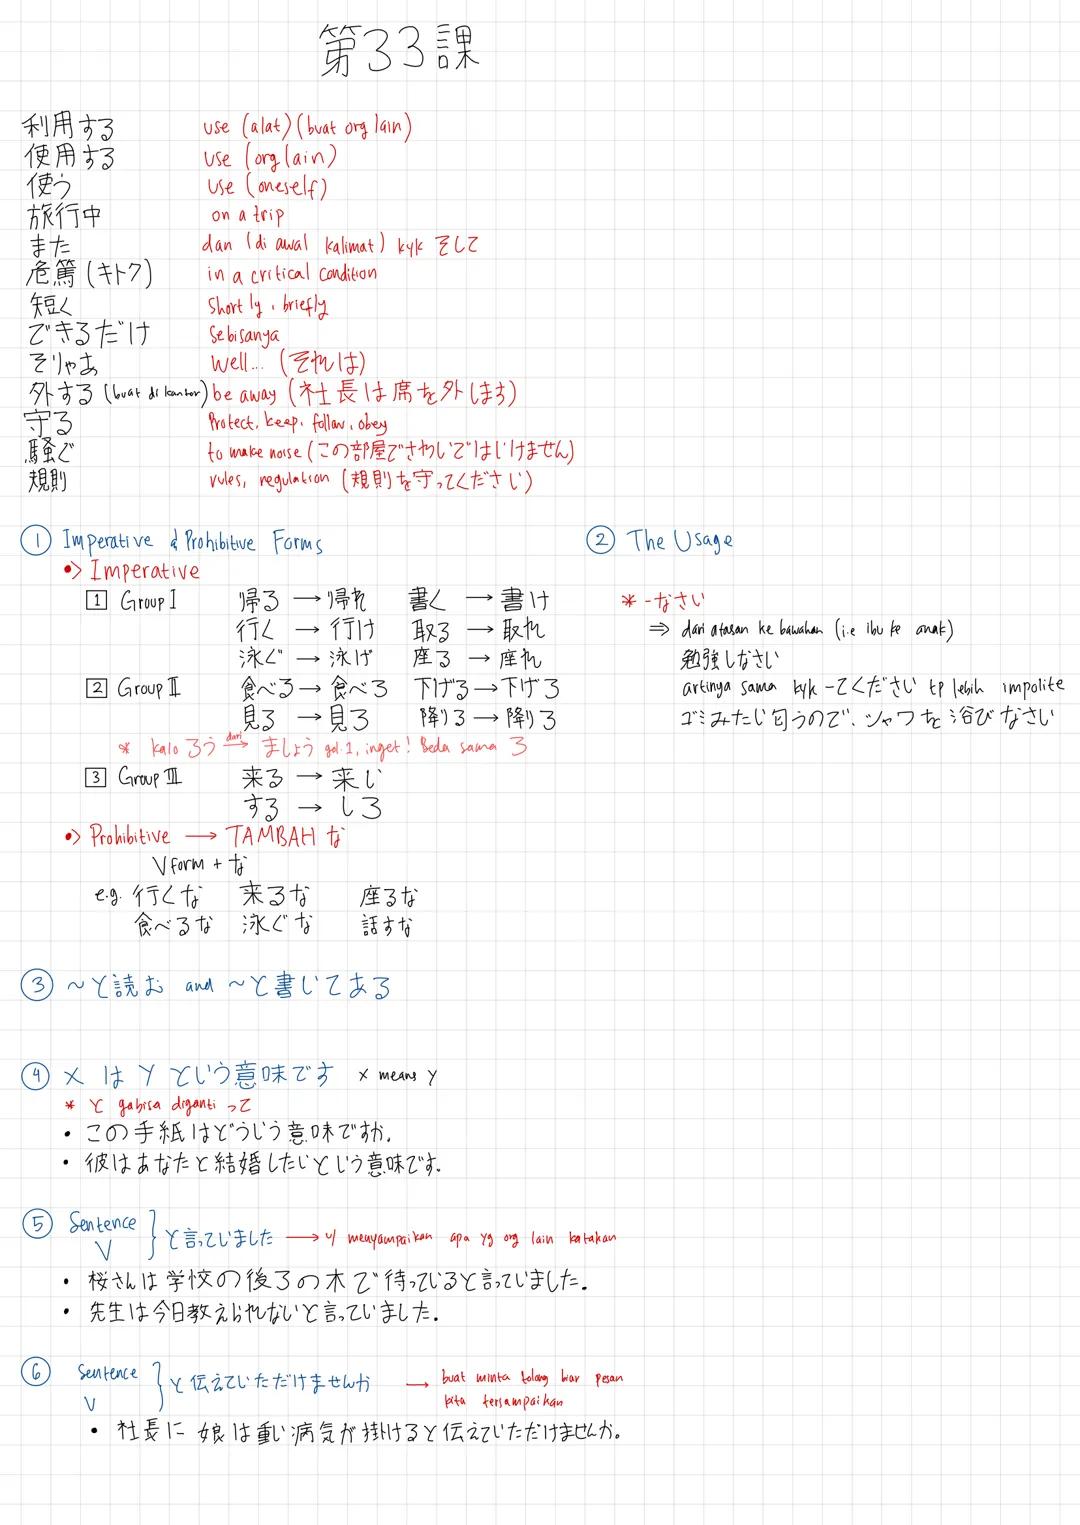 第33課
利用する use (alat) (buat org lain)
使用する use (org lain)
使う use (oneself)
旅行中 on a trip
また dan (di awal kalimat) kyk そして
危篤 (キトク) in a critical condition
短く Shortly, briefly
できるだけ Sebisanya
そりゃあ Well... (それは)
外する (buat di kantor) be away (社長は席を外します)
守る Protect, keep, follow, obey
騒ぐ to make noise (この部屋でさわいではいけません)
規則 rules, regulation (規則を守ってください)
① Imperative & Prohibitive Forms
•> Imperative
1 Group I 帰る → 帰れ 書く → 書け
行く → 行け 取る → 取れ
泳ぐ → 泳げ 座る → 座れ
2 Group II 食べる → 食べろ 下げる → 下げろ
見る → 見ろ 降りる → 降りろ
* kalo ろう dari→ ましょう gol.1, inget! Beda sama ろ
3 Group III 来る → 来い
する → しろ
•> Prohibitive → TAMBAH な
V form + な
e.g. 行くな 来るな 座るな
食べるな 泳ぐな 話すな
② The Usage
* -なさい
⇒ dari atasan ke bawahan (i.e ibu ke anak)
勉強しなさい
artinya sama kyk -てください tp lebih impolite
ゴミみたい匂うので、シャワを浴びなさい
③ ～と読む and ～と書いてある
④ X は Y という意味です X means Y
* と gabisa diganti って
• この手紙はどういう意味ですか.
• 彼はあなたと結婚したいという意味です.
⑤ Sentence
V } と言っていました → u/ menyampaikan apa yg org lain katakan
• 桜さんは学校の後ろの木で待っていると言っていました.
• 先生は今日教えられないと言っていました.
⑥ Sentence
V } と伝えていただけませんか → buat minta tolong biar pesan
kita tersampaikan
• 社長に 娘は重い病気が掛けると伝えていただけませんか。